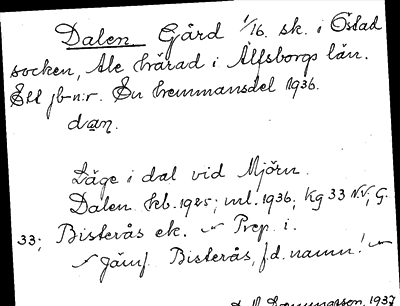 Dalen Gård 1/16. sk. i Östad
socken, Ale härad i Älfsborgs län.
Ett jb-n:r. En hemmansdel 1936.
dan.
Läge i dal vid Mjörn.
Dalen Feb. 1925; ml. 1936, Kg 33 N.V; G.
33; Bisterås ek. ~ Prep. i.
~ Jämf. Bisterås, f.d. namn! ~
1937